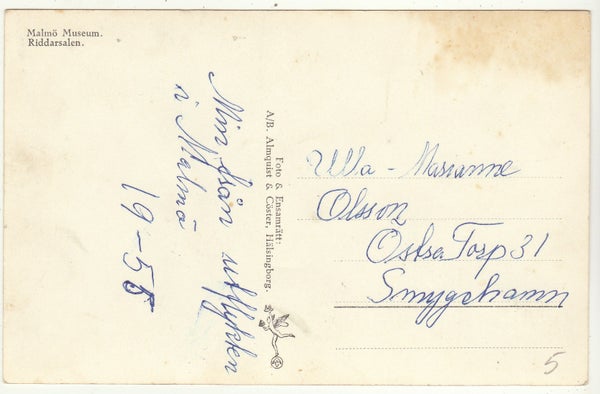 Malmö Museum.
Riddarsalen.
Minne från utflykten
i Malmö
19-55
Foto & Ensamrätt:
A/B. Almquist & Cöster, Hälsingborg.
Ulla-Marianne
Olsson
Östra Torp 31
Smygehamn
5